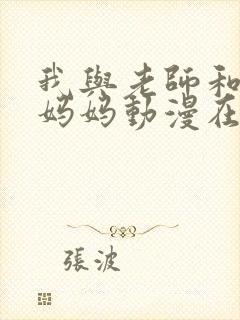 我與老師和
媽媽動漫在
張波